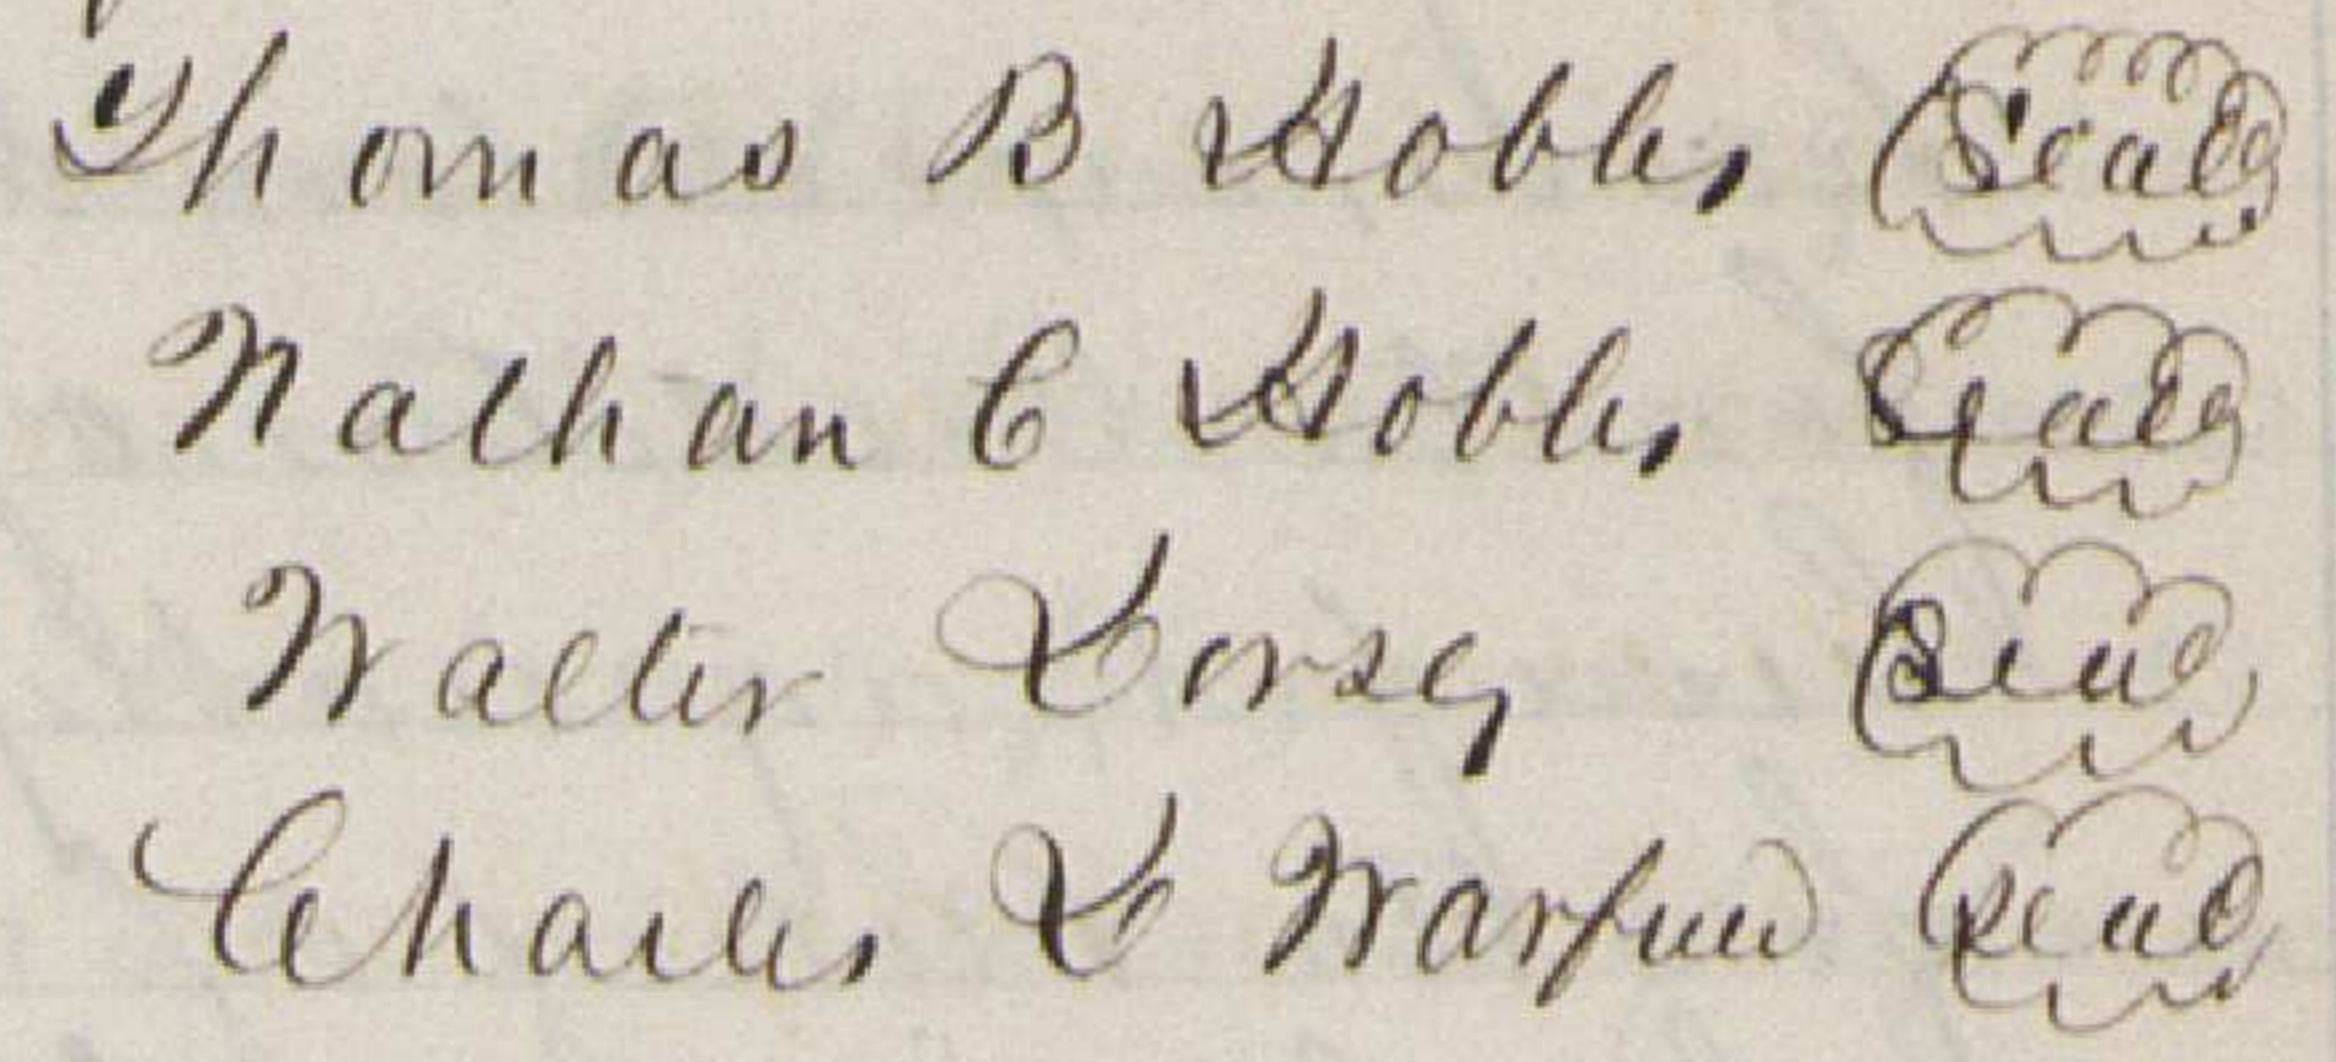 Thomas B Hobbs Seal
Nathan C Hobbs Seal
Walter Dorsey Seal
Charles D Warfield Seal